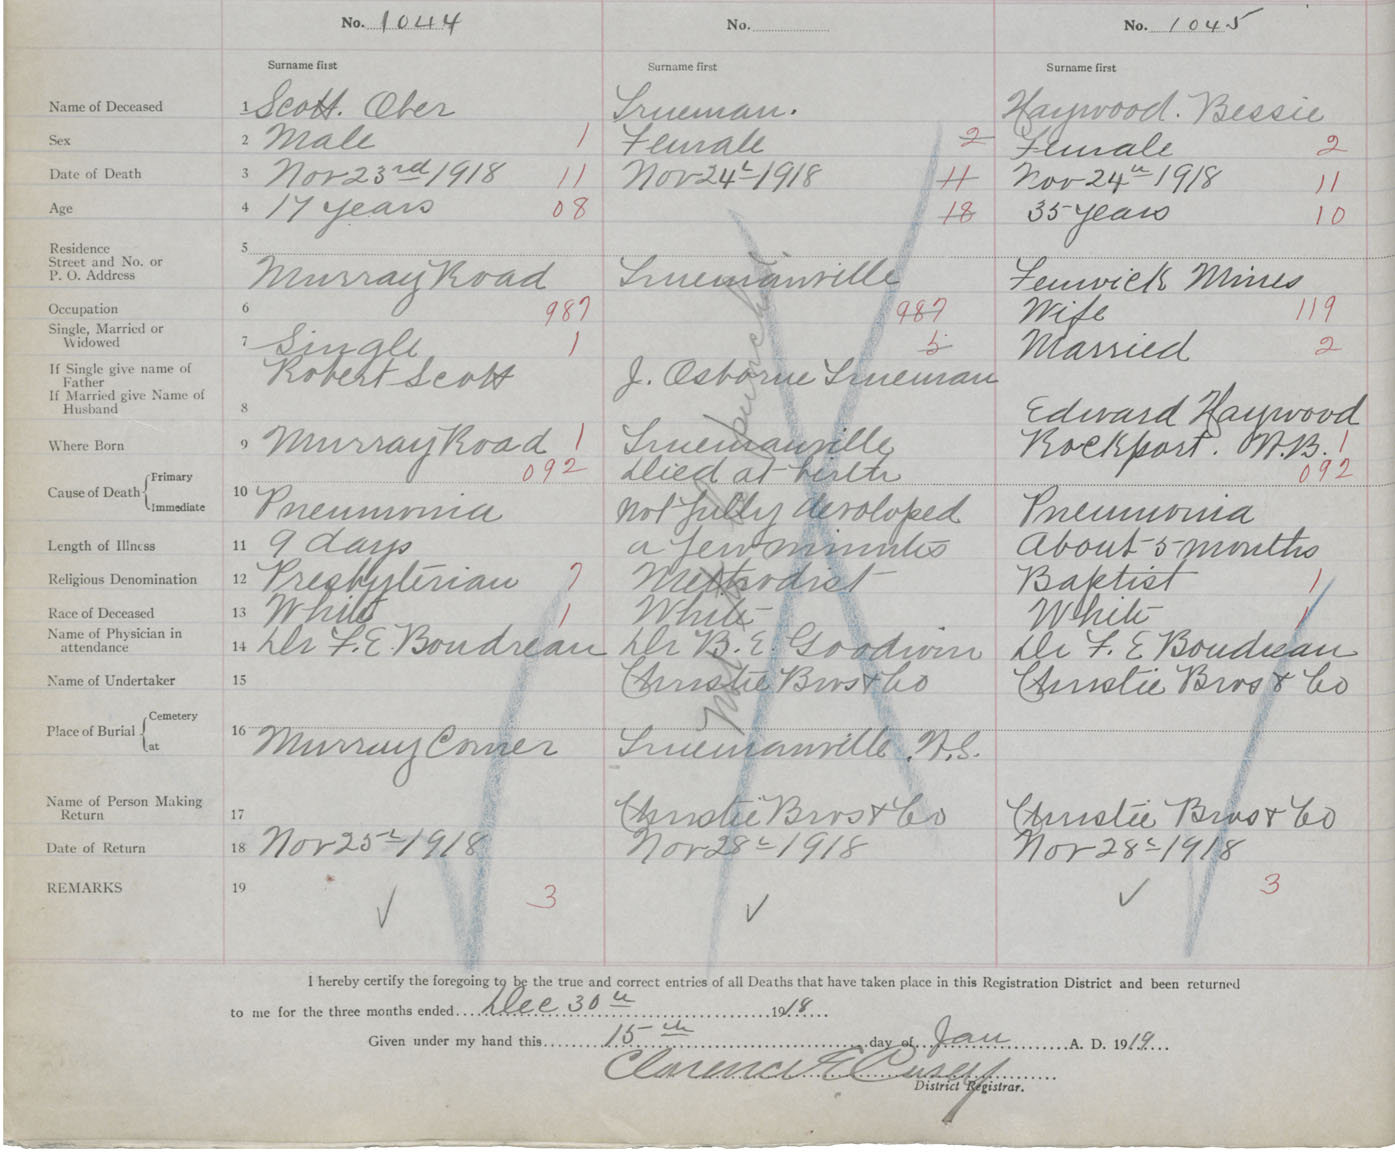 No. 1044 No. No. 1045
Surname first Surname first Surname first
Name of Deceased 1 Scott. Ober Trueman. Haywood. Bessie
Sex 2 Male 1 Female 2 Female 2
Date of Death 3 Nov 23rd 1918 11 Nov 24th 1918 11 Nov 24th 1918 11
Age 4 17 years 08 18 35 years 10
Residence 5
Street and No. or
P. O. Address Murray Road Truemanville Fenwick Mines
Occupation 6 987 987 Wife 119
Single, Married or
Widowed 7 Single 1 5 Married 2
If Single give name of
Father Robert Scott J. Osborne Trueman
If Married give Name of
Husband 8 Edward Haywood
Where Born 9 Murray Road 1 Truemanville Rockport. N.B. 1
092 Died at birth 092
Cause of Death Primary
Immediate 10 Pneumonia not fully devoloped Pneumonia
Length of Illness 11 9 days a few minutes About 5 months
Religious Denomination 12 Presbyterian 7 Methodist Baptist 1
Race of Deceased 13 White 1 White White 1
Name of Physician in
attendance 14 Dr F. E. Boudreau Dr B. E. Goodwin Dr F. E Boudreau
Name of Undertaker 15 Christie Bros & Co Christie Bros & Co
Place of Burial Cemetery
at 16 Murray Corner Truemanville. N.S.
Name of Person Making
Return 17 Christie Bros & Co Christie Bros & Co
Date of Return 18 Nov 25th 1918 Nov 28th 1918 Nov 28th 1918
REMARKS 19 3 3
I hereby certify the foregoing to be the true and correct entries of all Deaths that have taken place in this Registration District and been returned
to me for the three months ended Dec 30th 1918
Given under my hand this 15th day of Jan A. D. 1919
Clarence E
District Registrar.